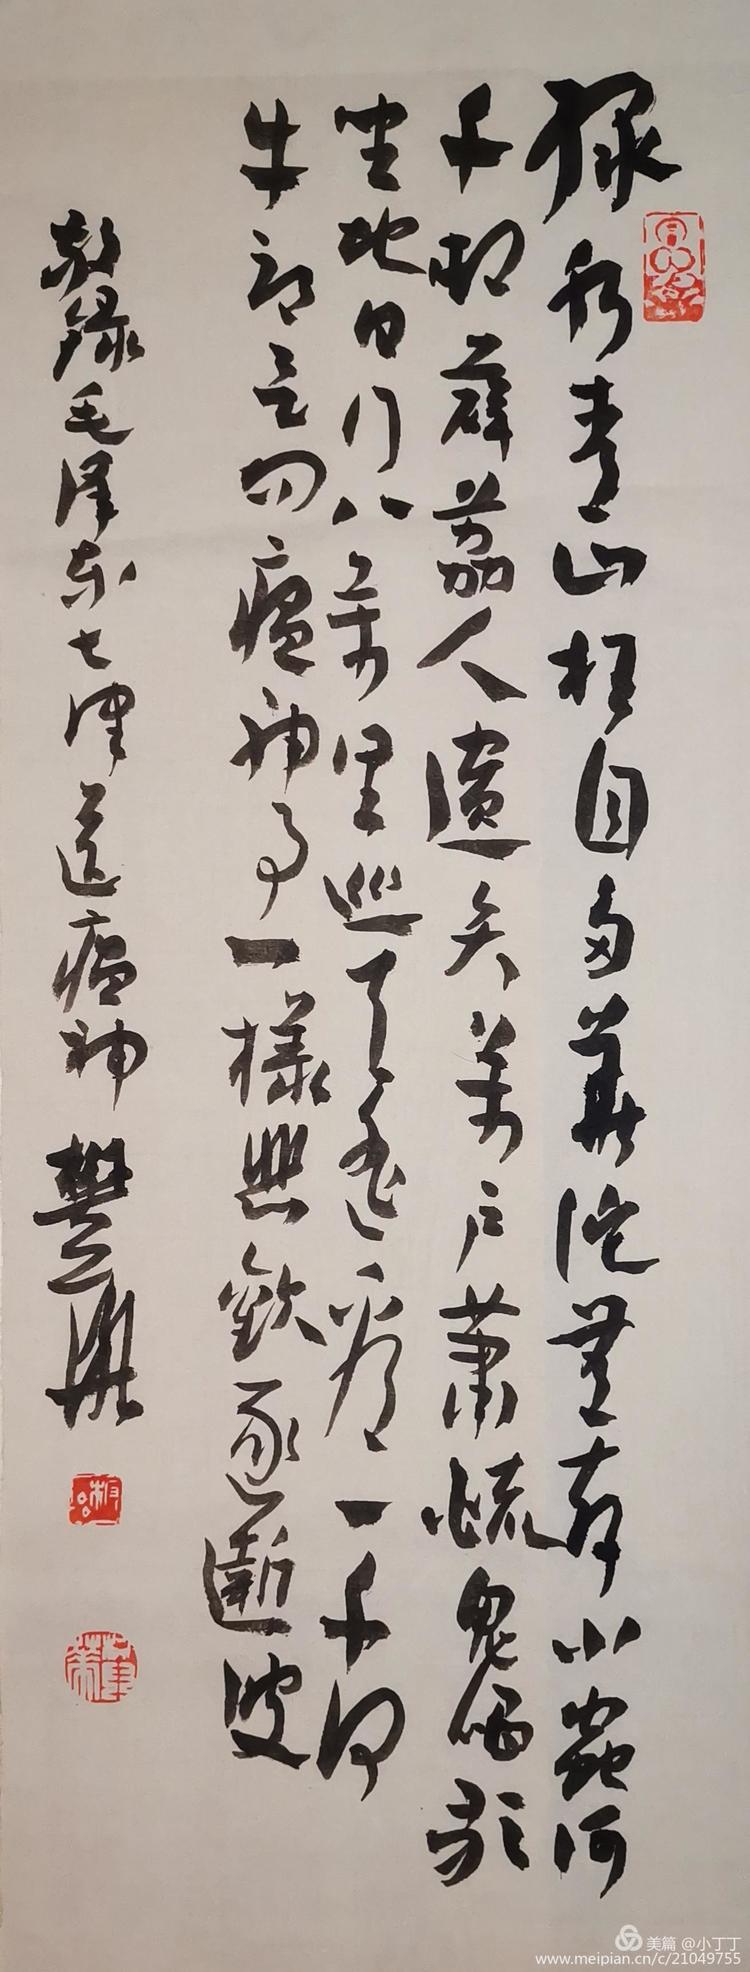 綠水青山枉自多華佗無奈小蟲何
千村薜荔人遺矢萬户蕭疏鬼唱歌
坐地日行八萬里巡天遥看一千河
牛郎欲问瘟神事一樣悲歡逐逝波
敬録毛泽东七律送瘟神 樊
美篇 @小丁丁
www.meipian.cn/c/21049755